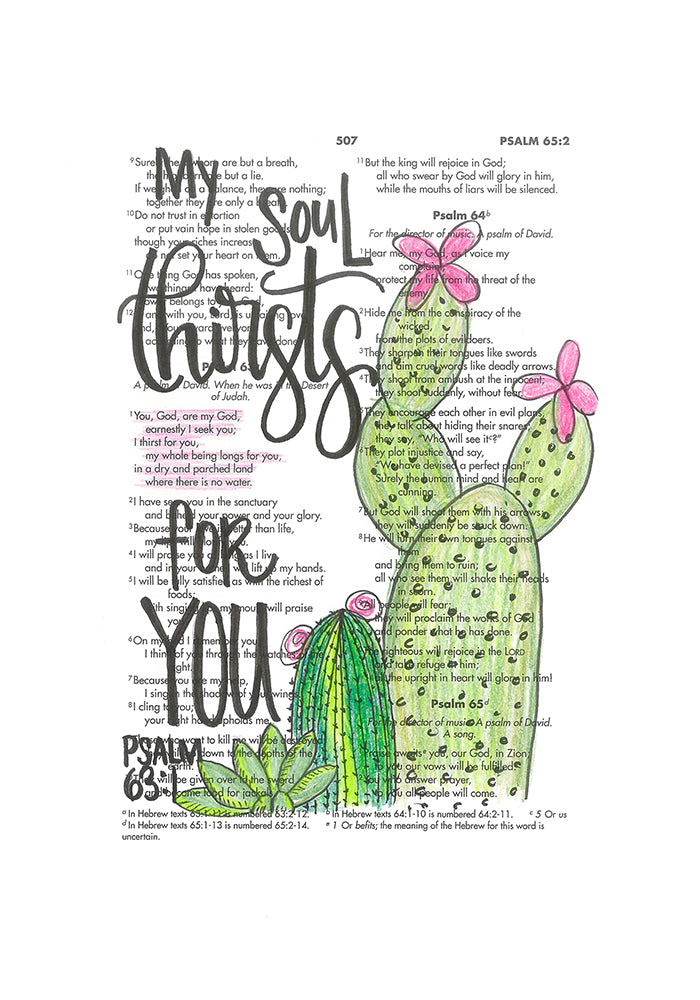 507
PSALM 65:2
My
SOUL
thirsts
for
YOU
PSALM
63:1
9Surely the whom are but a breath,
the are but a lie.
If weighed a balance, they are nothing;
together they are only a breath.
10Do not trust in extortion
or put vain hope in stolen goods
though your riches increase
not set your heart on them.
11One thing God has spoken,
two things I have heard:
belongs to God,
12and with you, Lord, is love
according to what they have done
A psalm of David. When he was in the Desert
of Judah.
1You, God, are my God,
earnestly I seek you;
I thirst for you,
my whole being longs for you,
in a dry and parched land
where there is no water.
2I have seen you in the sanctuary
and beheld your power and your glory.
3Because your love is better than life,
my will you.
4I will praise you as long as I live
and in your lift up my hands.
5I will be fully satisfied as with the richest of
foods;
with singing my mouth will praise
you
6On my bed I remember you
I think of you through the watches of the
night.
7Because you are my help,
I sing in the shadow of your wings
8I cling to you;
your right hand upholds me.
Those who want to kill me will be destroyed
down to the depths of the
earth.
They will be given over to the sword
and become food for jackals
11But the king will rejoice in God;
all who swear by God will glory in him,
while the mouths of liars will be silenced.
Psalm 64b
For the director of music. A psalm of David.
1Hear me, my God, as I voice my
complaint;
protect my life from the threat of the
enemy
2Hide me from the conspiracy of the
wicked,
from the plots of evildoers.
3They sharpen their tongues like swords
and aim cruel words like deadly arrows.
4They shoot from ambush at the innocent;
they shoot suddenly, without fear.
5They encourage each other in evil plans,
they talk about hiding their snares;
they say, “Who will see itc?”
6They plot injustice and say,
“We have devised a perfect plan!”
Surely the human mind and heart are
cunning.
7But God will shoot them with his arrows;
they will suddenly be struck down.
8He will turn their own tongues against
them
and bring them to ruin;
all who see them will shake their heads
in scorn.
9All people will fear;
they will proclaim the works of God
and ponder what he has done.
The righteous will rejoice in the LORD
and take refuge in him;
all the upright in heart will glory in him!
Psalm 65d
For the director of music. A psalm of David.
A song.
Praise awaitse you, our God, in Zion;
to you our vows will be fulfilled.
2You who answer prayer,
to you all people will come.
a In Hebrew texts 63:1-11 is numbered 63:2-12.
b In Hebrew texts 64:1-10 is numbered 64:2-11.
c 5 Or us
d In Hebrew texts 65:1-13 is numbered 65:2-14.
e 1 Or befits; the meaning of the Hebrew for this word is
uncertain.